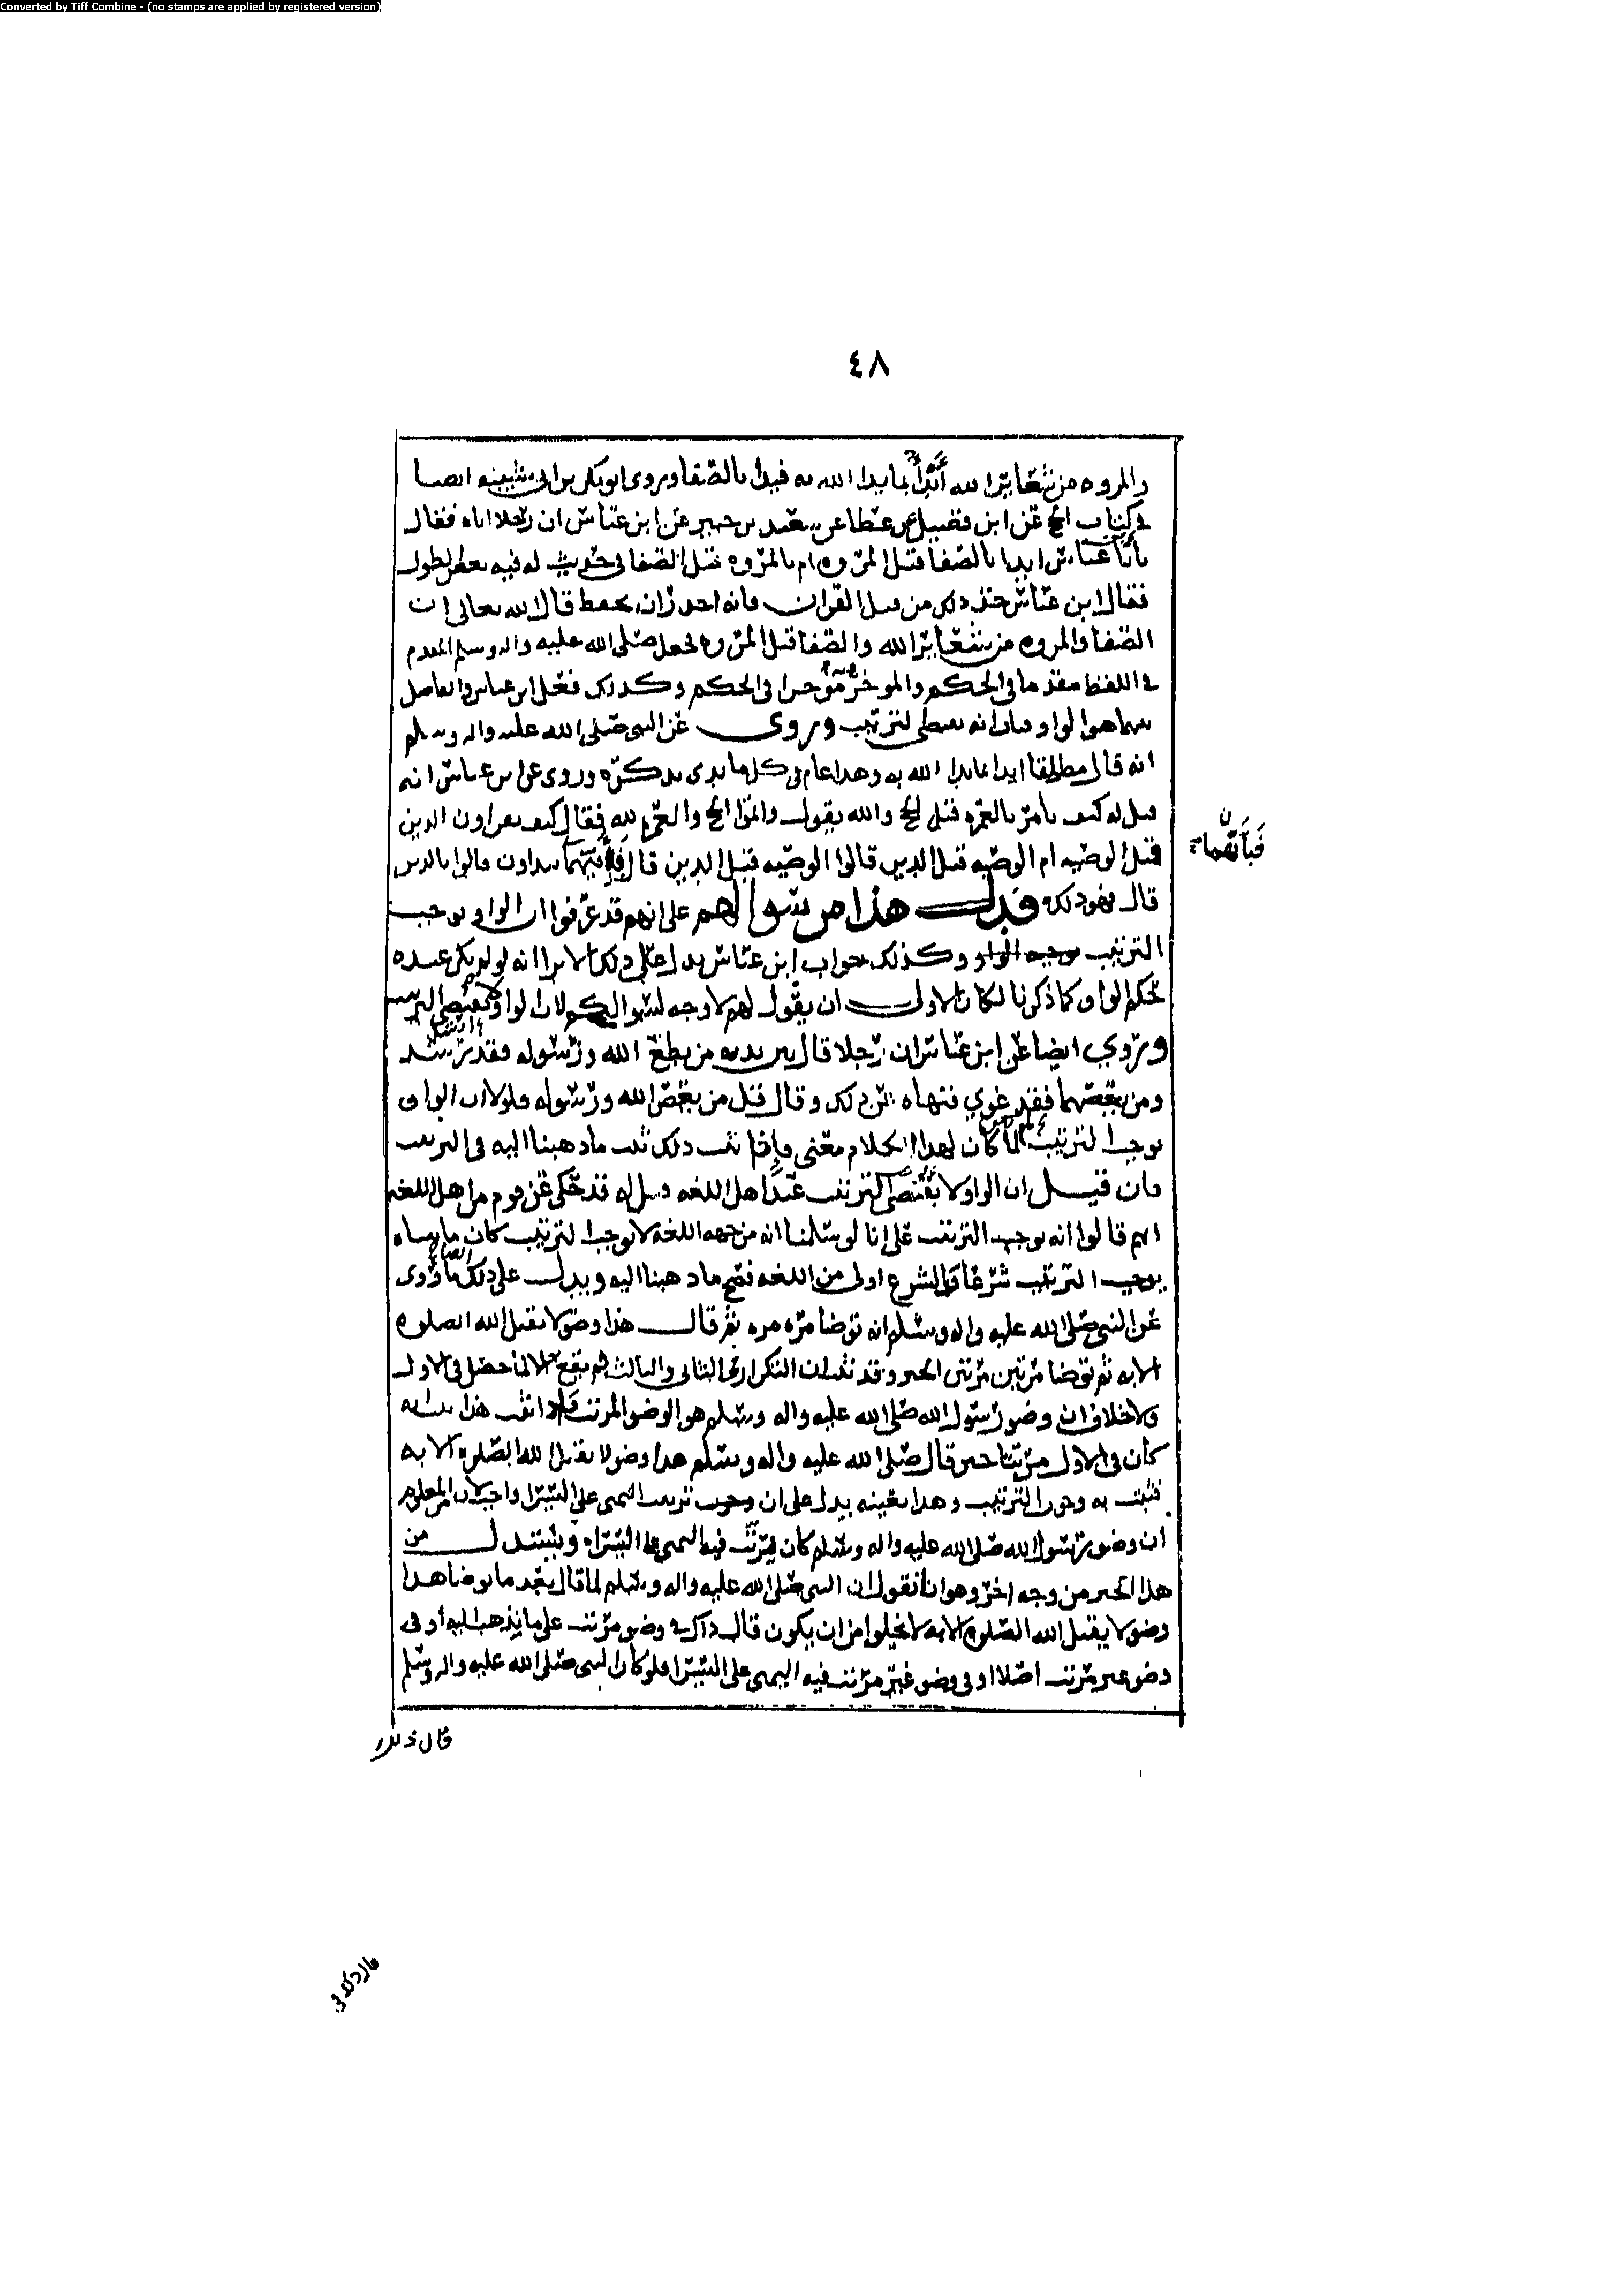 Converted by Tiff Combine - (no stamps are applied by registered version)
٤٨
والمروه من شعاير الله أبدأ بما بدا الله به فبدا بالصفا وروى ابو بكر بن ابي شيبه ايضا
في كتاب الحج عن ابن فضيل عن عطا عن سعيد بن جبير عن ابن عباس ان رجلا اتاه فقال
يا با عباس ابدا بالصفا قبل المروه ام بالمروه قبل الصفا في حديث له فيه بعض الطول
فقال ابن عباس خذ ذلك من قبل القران فانه احدر ان يحفظ قال الله تعالى ان
الصفا والمروه من شعاير الله والصفا قبل المروه فجعل صلى الله عليه واله وسلم المقدم
في اللفظ مقدما في الحكم والموخر موخرا في الحكم وكذلك فعل ابن عباس والفاصل
بينهما هو الواو فبان انه يعطي الترتيب وروى عن النبي صلى الله عليه واله وسلم
انه قال مطلقا ابدا بما بدا الله به وهذا عام في كل ما بدى بذكره وروى عن ابن عباس انه
قيل له كيف يامر بالعمره قبل الحج والله يقول واتموا الحج والعمره لله فقال كيف تقراون الدين
قبل الوصيه ام الوصيه قبل الدين قالوا الوصيه قبل الدين قال فبايتهما تبداون قالوا بالدين
فبأيهما ن
قال فهو ذلك فدل هذا من سوالهم على انهم قد عرفوا ان الواو توجب
الترتيب وكذلك جواب ابن عباس يدل على ذلك الا ترا انه لو لم يكن عنده
حكم الواو كما ذكرنا لكان الاولى ان يقول لهم لا وجه لسوالكم لان الواو لا تقتضي الترتيب
وروي ايضا عن ابن عباس ان رجلا قال بين يديه من يطع الله ورسوله فقد رشد
ومن يعصهما فقد غوي فنهاه عن ذلك وقال قل من يعص الله ورسوله فلولا ان الواو
توجب الترتيب لما كان لهذا الكلام معنى واذا ثبت ذلك ثبت ما ذهبنا اليه في الترتيب
فان قيل ان الواو لا يقتضي الترتيب عند اهل اللغه قيل له قد حكى عن قوم من اهل اللغه
انهم قالوا انه يوجب الترتيب على انا لو سلمنا انه من جهه اللغه لا يوجب الترتيب كان ما بيناه
يوجب الترتيب شرعا والشرع اولى من اللغه فصح ما ذهبنا اليه ويدل على ذلك ايضا ما روى
عن النبي صلى الله عليه واله وسلم انه توضا مره مره ثم قال هذا وضو لا يقبل الله الصلوه
الا به ثم توضا مرتين مرتين الخبر وقد ثبت ان التكرار في الثاني والثالث لم يقع الا لما حصل في الاول
ولا خلاف ان وضو رسول الله صلى الله عليه واله وسلم هو الوضو المرتب فاذا ثبت هذا ثبت انه
كان في الاول مرتبا حين قال صلى الله عليه واله وسلم هذا وضو لا يقبل الله الصلوه الا به
فثبت به وجوب الترتيب وهذا بعينه يدل على ان وجوب ترتيب اليمنى على اليسرا واجب لان المعلوم من
ان وضو رسول الله صلى الله عليه واله وسلم كان مرتب فيه اليمنى على اليسراه ويستدل من
هذا الخبر من وجه اخر وهو انا نقول ان النبي صلى الله عليه واله وسلم لما قال بعد ما توضا هذا
وضو لا يقبل الله الصلوه الا به لا يخلوا من ان يكون قال ذلك في وضو مرتب على ما يذهب اليه او في
وضو غير مرتب اصلا او في وضو غير مرتب فيه اليمنى على اليسرا فلو كان النبي صلى الله عليه واله وسلم
قال ذلك
قال ذلك في